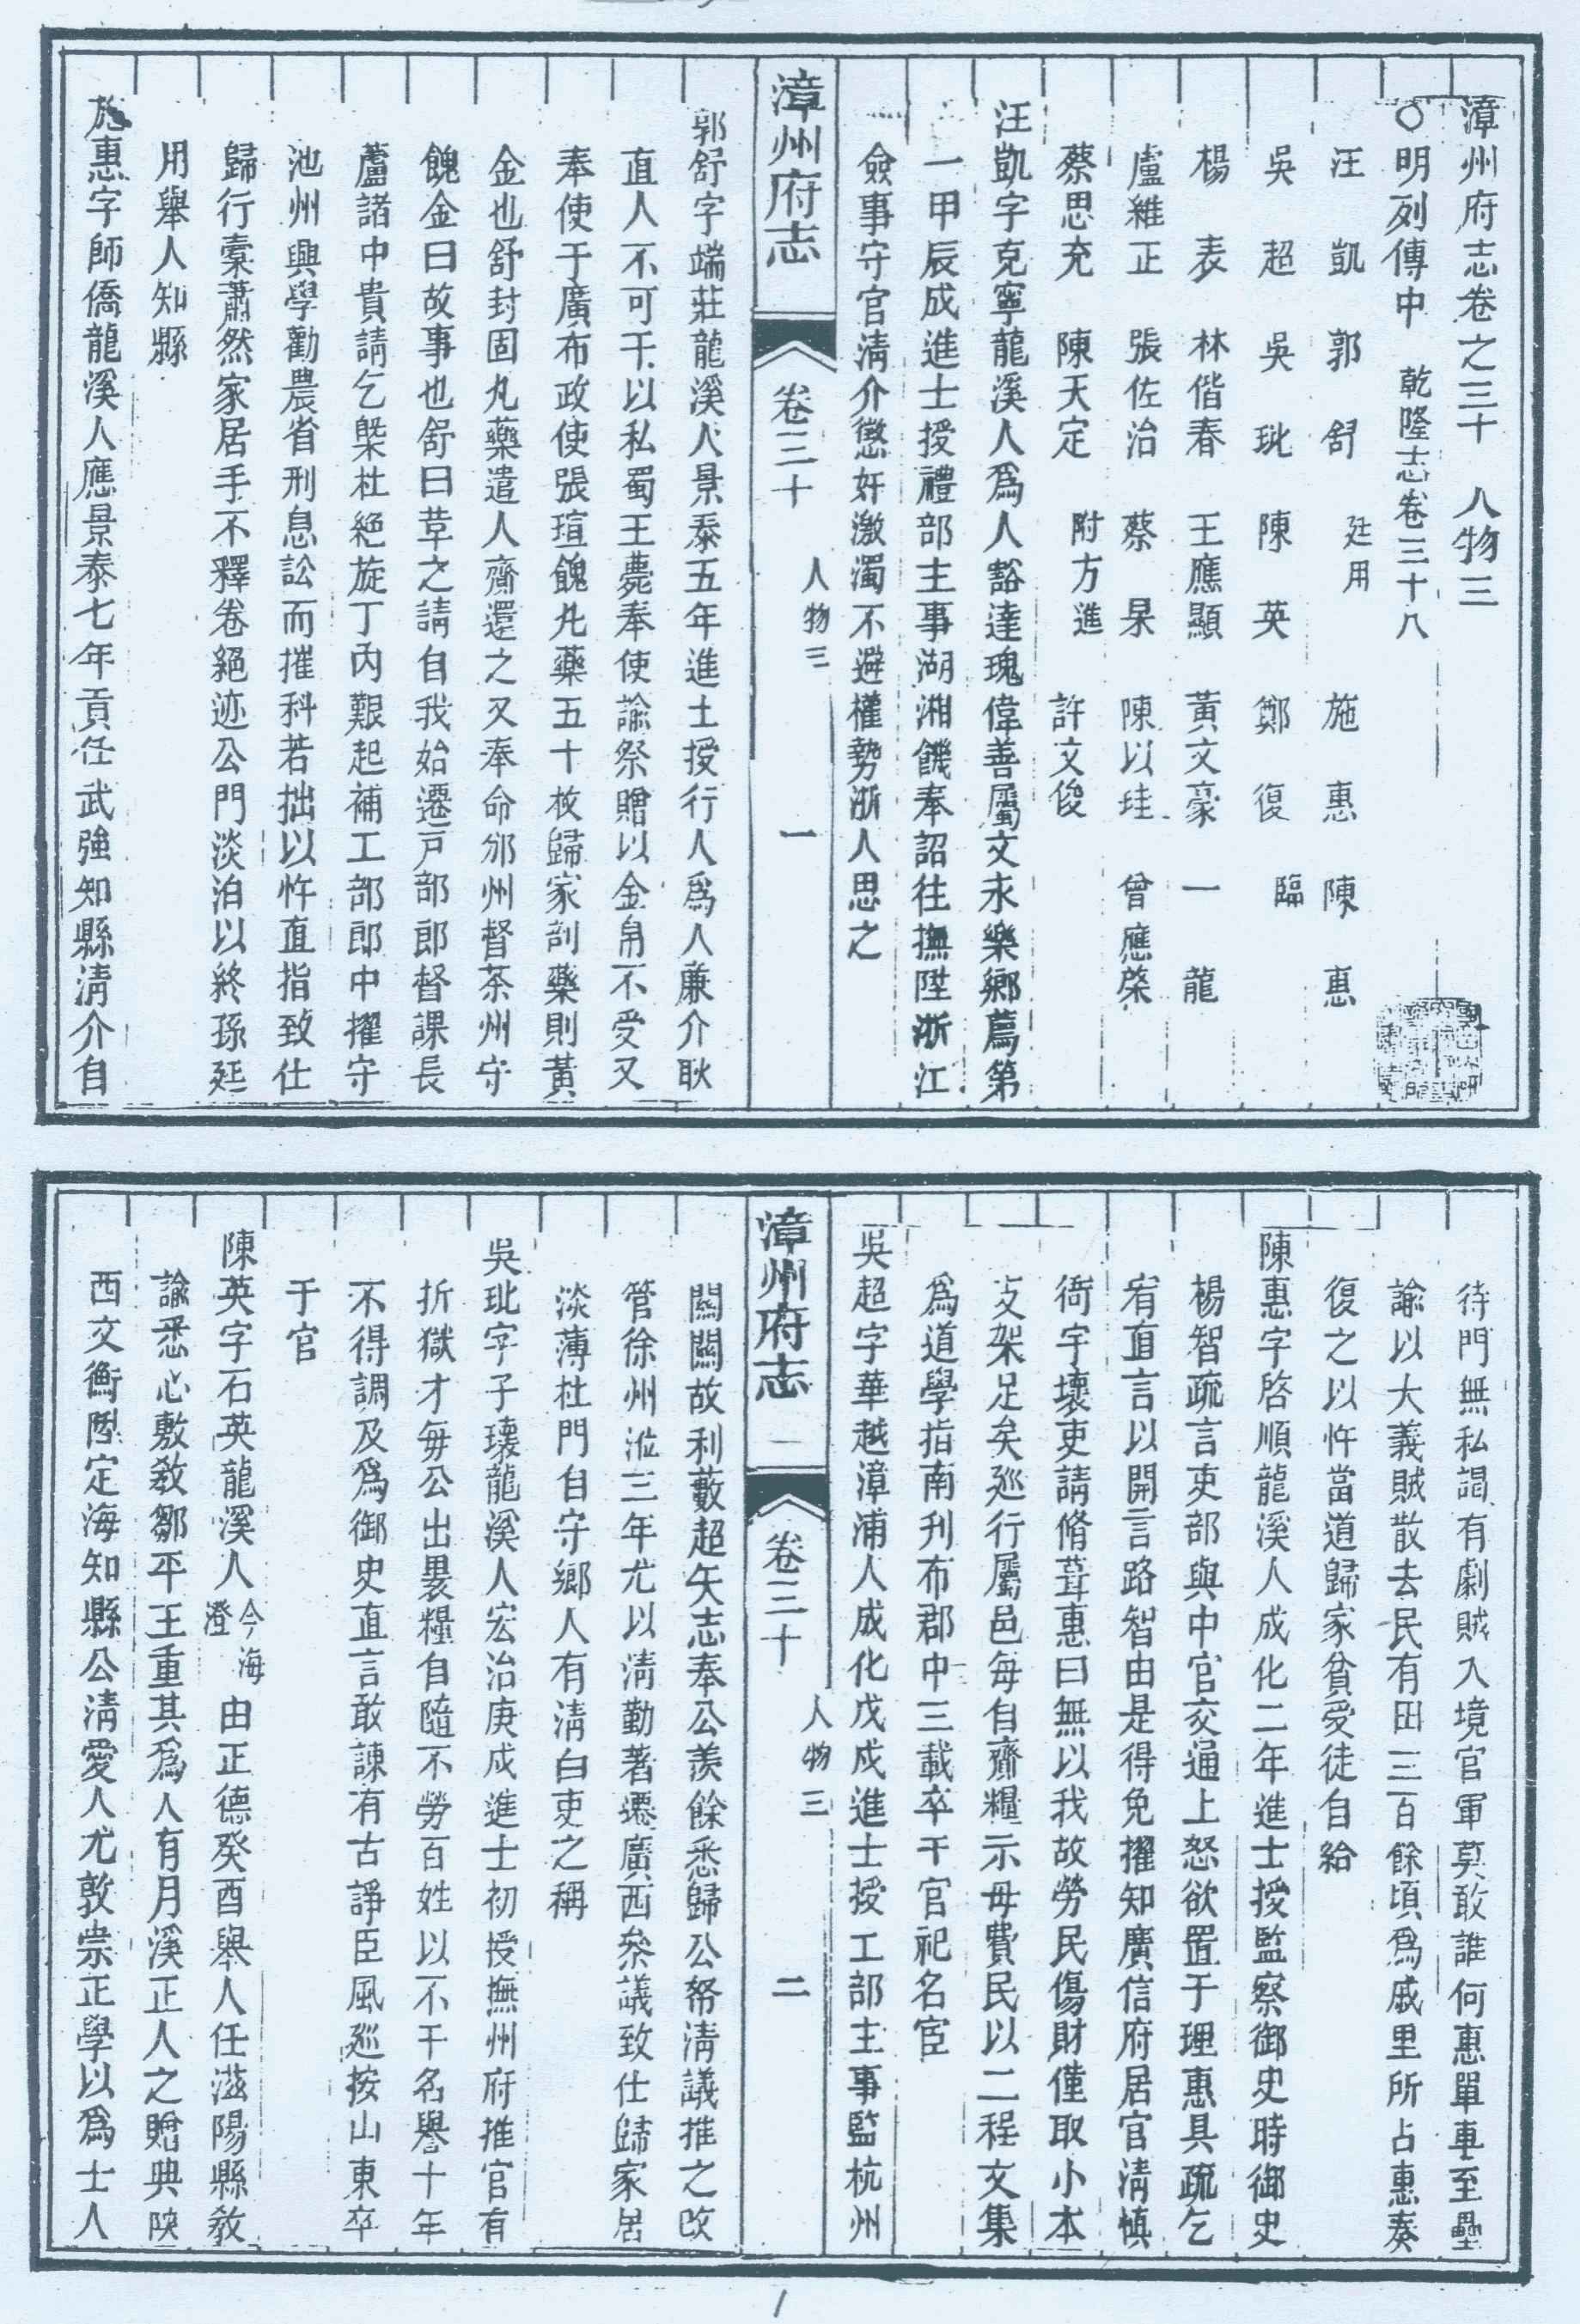 漳州府志卷之三十　人物三
○明列傳中　乾隆志卷三十八
汪　凱　郭　舒　廷用　施　惠　陳　惠
吳　超　吳　玭　陳　英　鄭　復　臨
楊　表　林偕春　王應顯　黃文豪　一　龍
盧維正　張佐治　蔡　杲　陳以珪　曾應棨
蔡思充　陳天定　附方進　許文俊
汪凱字克寧龍溪人爲人豁達瑰偉善屬文永樂鄉薦第
一甲辰成進士授禮部主事湖湘饑奉詔往撫陞浙江
僉事守官淸介懲奸激濁不避權勢浙人思之
漳州府志　卷三十　人物三　一
郭舒字端莊龍溪人景泰五年進士授行人爲人廉介耿
直人不可干以私蜀王薨奉使諭祭贈以金帛不受又
奉使于廣布政使張瑄餽丸藥五十枚歸家剖藥則黃
金也舒封固丸藥遣人齎還之又奉命邠州督茶州守
餽金曰故事也舒曰革之請自我始遷戸部郎督課長
蘆諸中貴請乞槩杜絕旋丁內艱起補工部郎中擢守
池州興學勸農省刑息訟而摧科若拙以忤直指致仕
歸行橐蕭然家居手不釋卷絕迹公門淡泊以終孫廷
用舉人知縣
施惠字師僑龍溪人應景泰七年貢任武強知縣淸介自
待門無私謁有劇賊入境官軍莫敢誰何惠單車至壘
諭以大義賊散去民有田三百餘頃爲戚里所占惠奏
復之以忤當道歸家貧受徒自給
陳惠字啓順龍溪人成化二年進士授監察御史時御史
楊智疏言吏部與中官交通上怒欲置于理惠具疏乞
宥直言以開言路智由是得免擢知廣信府居官淸愼
衙宇壞吏請脩葺惠曰無以我故勞民傷財僅取小木
支架足矣廵行屬邑每自齎糧示毋費民以二程文集
爲道學指南刋布郡中三載卒于官祀名宦
吳超字華越漳浦人成化戊戌進士授工部主事監杭州
漳州府志　卷三十　人物三　二
關關故利藪超矢志奉公羨餘悉歸公帑淸議推之改
管徐州涖三年尤以淸勤著遷廣西叅議致仕歸家居
淡薄杜門自守鄉人有淸白吏之稱
吳玭字子瓌龍溪人宏治庚戌進士初授撫州府推官有
折獄才每公出裹糧自隨不勞百姓以不干名譽十年
不得調及爲御史直言敢諫有古諍臣風廵按山東卒
于官
陳英字石英龍溪人今海澄由正德癸酉舉人任滋陽縣敎
諭悉心敷敎鄒平王重其爲人有月溪正人之贈典陝
西文衡陞定海知縣公淸愛人尤敦崇正學以爲士人